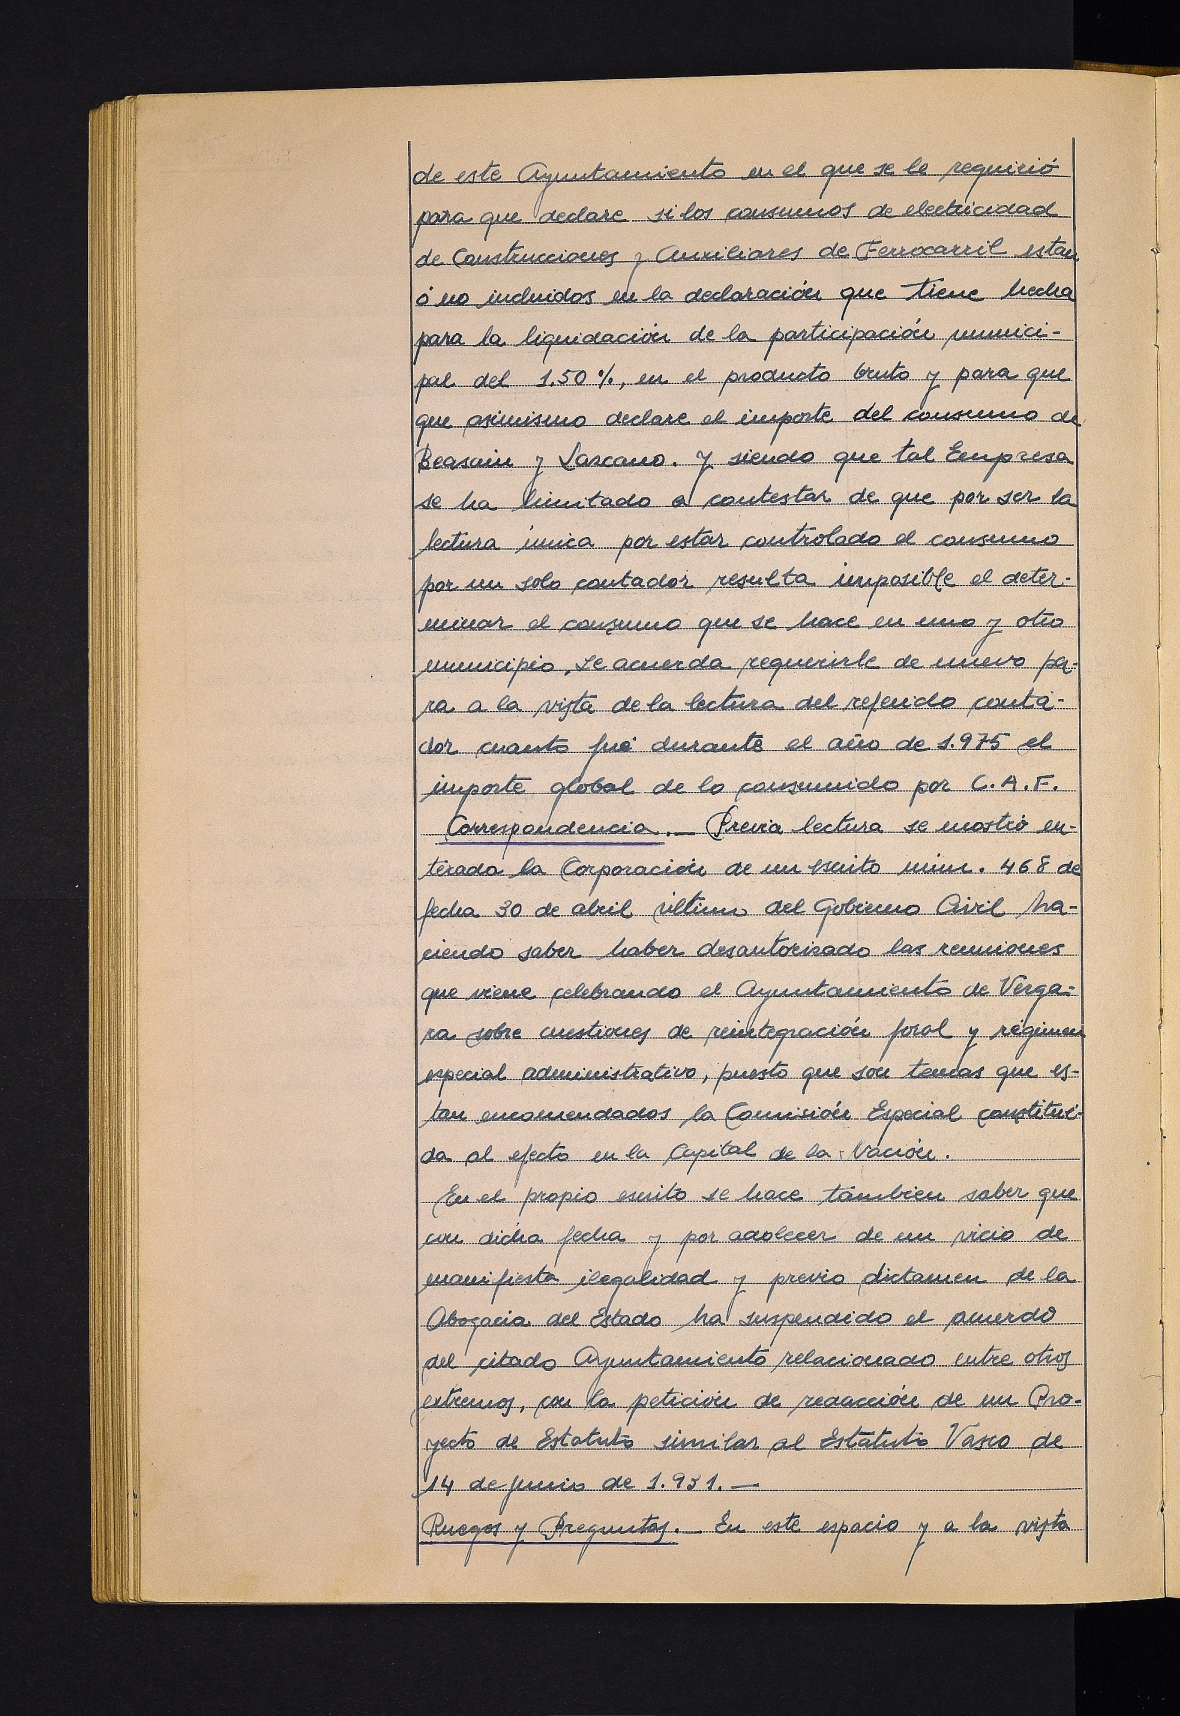 de este Ayuntamiento en el que se le requirió
para que declare si los consumos de electricidad
de Construcciones y Auxiliares de Ferrocarril estan
ó no incluidos en la declaración que tiene hecha
para la liquidación de la participación munici-
pal del 1.50 %, en el producto bruto y para que
que asimismo declare el importe del consumo de
Beasain y Lazcano. Y siendo que tal Empresa
se ha limitado a contestar de que por ser la
lectura única por estar controlado el consumo
por un solo contador resulta imposible el deter-
minar el consumo que se hace en uno y otro
municipio, se acuerda requerirle de nuevo pa-
ra a la vista de la lectura del referido conta-
dor cuanto fué durante el año de 1.975 el
importe global de lo consumido por C.A.F.
Correspondencia.— Previa lectura se mostró en-
terada la Corporación de un escrito núm. 468 de
fecha 30 de abril último del Gobierno Civil ha-
ciendo saber haber desautorizado las reuniones
que viene celebrando el Ayuntamiento de Verga-
ra sobre cuestiones de reintegración foral y régimen
especial administrativo, puesto que son temas que es-
tan encomendados la Comisión Especial constitui-
da al efecto en la Capital de la Nación.
En el propio escrito se hace tambien saber que
con dicha fecha y por adolecer de un vicio de
manifiesta ilegalidad y previo dictamen de la
Abogacia del Estado ha suspendido el acuerdo
del citado Ayuntamiento relacionado entre otros
extremos, con la petición de redacción de un Pro-
yecto de Estatuto similar al Estatuto Vasco de
14 de Junio de 1.931.—
Ruegos y Preguntas.— En este espacio y a la vista